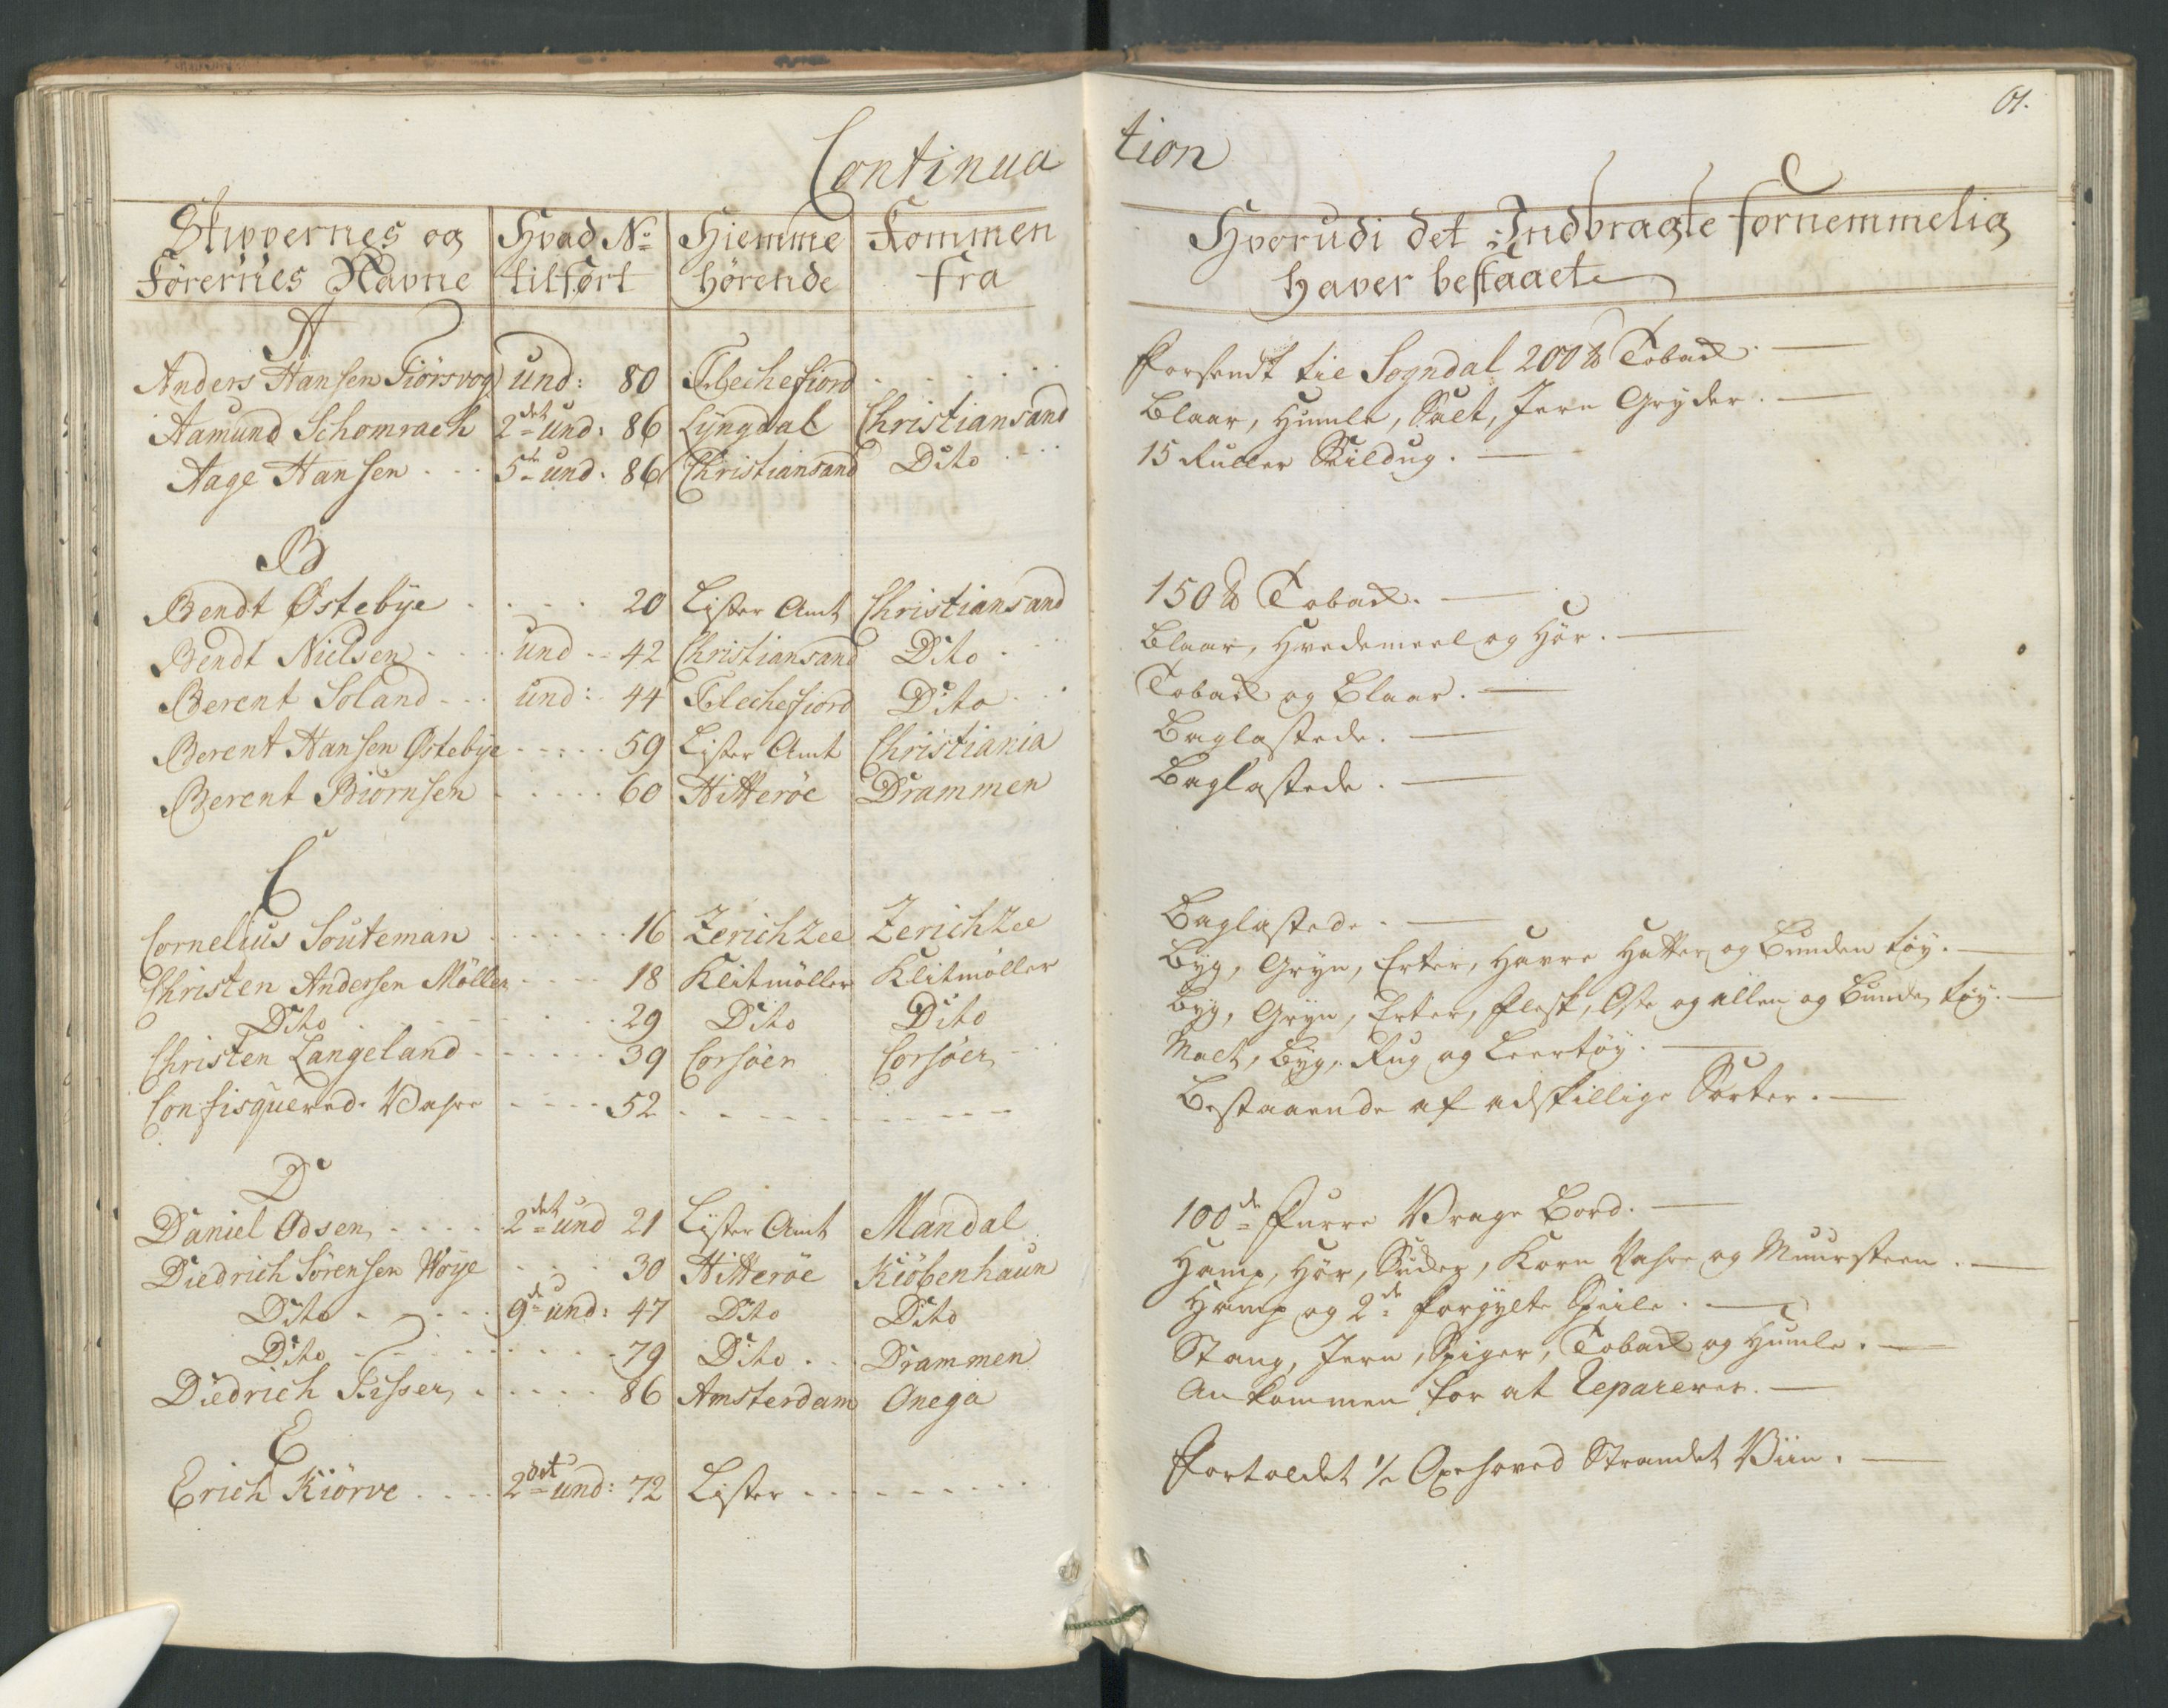 61.
Continuation
Skippernes og | Hvad No | Hiemme | Kommen | Hvorudi det Indbragte fornemmelig
Førernes Navne | tilført | hørende | fra | haver bestaaet
A
Anders Hansen Fiörsvog | und: 80 | Flechefiord | Forsendt til Sogndal 200 ℔ Toback.
Aamund Schomrach | 2det und: 86 | Lÿngdal | Christiansand | Blaar, Humle, Salt, Jern Gryder.
Aage Hansen | 5te und: 86 | Christiansand | Dito | 15 Ruller Seildug.
B
Bendt Østebÿe | 20 | Lister Amt | Christiansand | 150 ℔ Toback.
Bendt Nielsen | und 42 | Christiansand | Dito | Blaar, Hvedemeel og Hør.
Berent Soland | und: 44 | Flechefiord | Dito | Toback og Blaar.
Berent Hansen Østebÿe | 59 | Lister Amt | Christiania | Baglastede.
Berent Biörnsen | 60 | Hitteröe | Drammen | Baglastede.
C
Cornelius Souteman | 16 | Zerichzee | Zerichzee | Baglastede.
Christen Andersen Möller | 18 | Klitmöller | Klitmöller | Byg, Gryn, Erter, Havre Hatter og Bunden tøy.
Dito | 29 | Dito | Dito | Byg, Gryn, Erter, Flesk, Oste og Ullen og Bunden tøy.
Christen Langeland | 39 | Corsöer | Corsöer | Malt, Byg, Rug og Leertøy.
Confisquerede Vahre | 52 | Bestaaende af adskillige Sorter.
D
Daniel Odsen | 2det und 21 | Lister Amt | Mandal | 100de Furre Vrage Bord.
Diedrich Sörensen Höÿe | 30 | Hitteröe | Kiöbenhaun | Hamp, Hør, Korn Vahre og Muursteen.
Dito | 9de und: 47 | Dito | Dito | Hamp og 2de forgylte Speile.
Dito | 79 | Dito | Drammen | Stang, Jern, Spiger, Toback og Humle.
Diedrich Visser | 86 | Amsterdam | Onega | Ankommen for at Reparere.
E
Erich Kiörve | 2det und: 72 | Lister | Fortoldet 1/2 Oxehoved Strandet Viin.